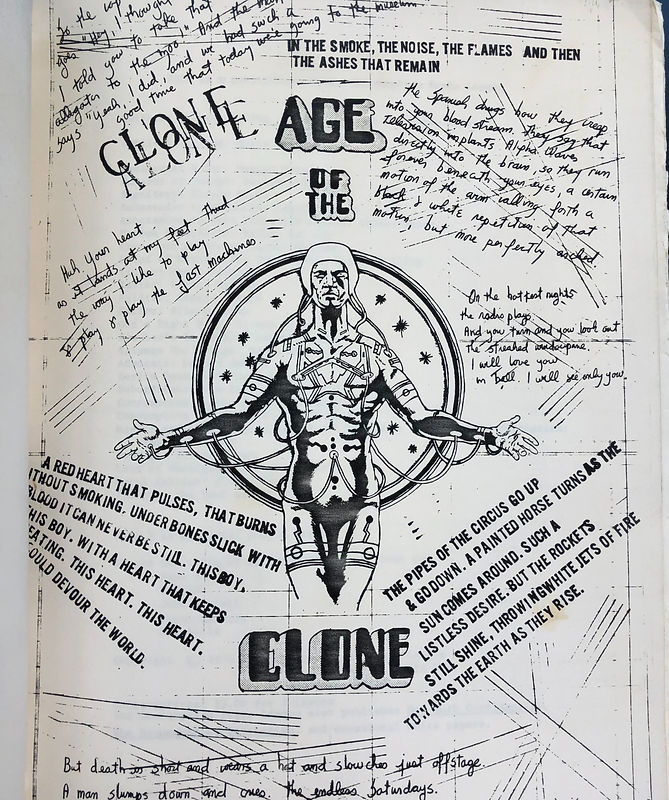 to take that
goes "Hey, I
I told you to take that
alligator to the zoo!" And the man
says "Yeah, I did, and we had such a
good time that today we're going to the museum
IN THE SMOKE, THE NOISE, THE FLAMES AND THEN
THE ASHES THAT REMAIN
CLONE
ALONE
AGE
OF
THE
the Spanish drugs how they creep
into your blood stream. They say that
Television implants Alpha Waves
directly into the brain, so they run
forever beneath your eyes, a certain
motion of the arm calling forth a
black & white repetition of that
motion, but more perfectly arched.
Huh, your heart
as it lands at my feet Thud
the way I like to play
to play & play the last machines
On the hottest nights
the radio plays
And you turn and you look out
the streaked windowpane
I will love you
in hell. I will see only you
A RED HEART THAT PULSES, THAT BURNS
WITHOUT SMOKING. UNDER BONES SLICK WITH
BLOOD IT CAN NEVER BE STILL. THIS BOY,
THIS BOY. WITH A HEART THAT KEEPS
EATING. THIS HEART. THIS HEART.
WOULD DEVOUR THE WORLD.
THE PIPES OF THE CIRCUS GO UP
& GO DOWN. A PAINTED HORSE TURNS AS THE
SUN COMES AROUND. SUCH A
LISTLESS DESIRE. BUT THE ROCKETS
STILL SHINE, THROWING WHITE JETS OF FIRE
TOWARDS THE EARTH AS THEY RISE.
CLONE
But death is short and wears a hat and slouches just offstage
A man slumps down and over. the endless Saturdays.